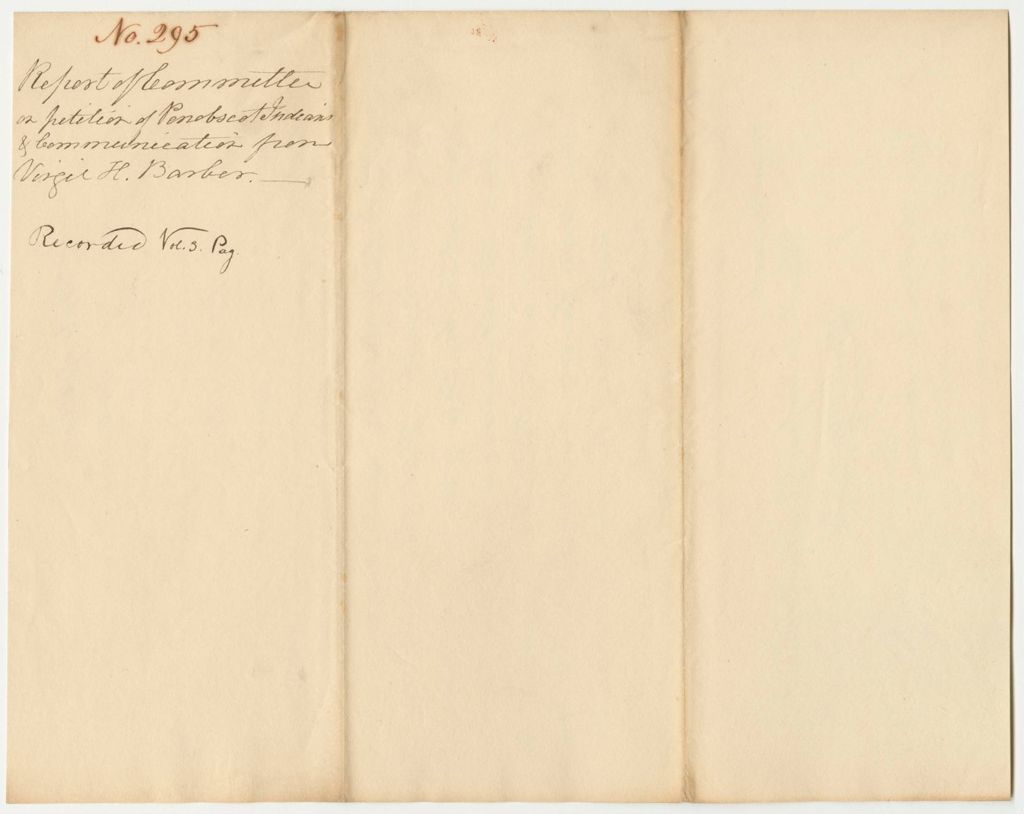 No. 295
Report of Committee
on petition of Penobscot Indians
& Communication from
Virgil H. Barber.
Recorded Vol. 3. Pag